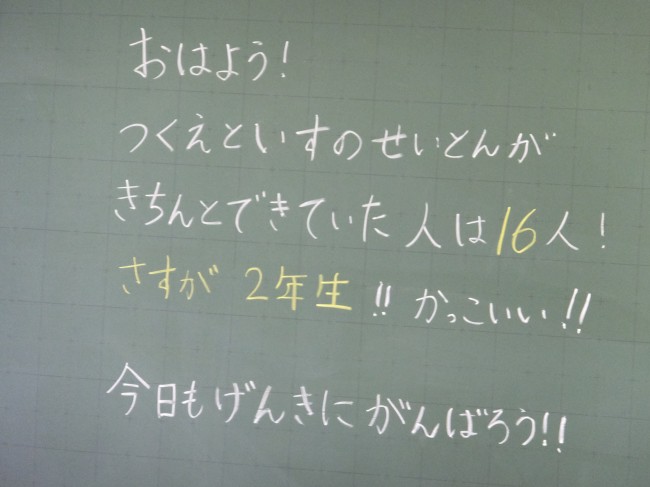 おはよう!
つくえといすのせいとんが
きちんとできていた人は16人!
さすが 2年生!! かっこいい!!
今日もげんきにがんばろう!!